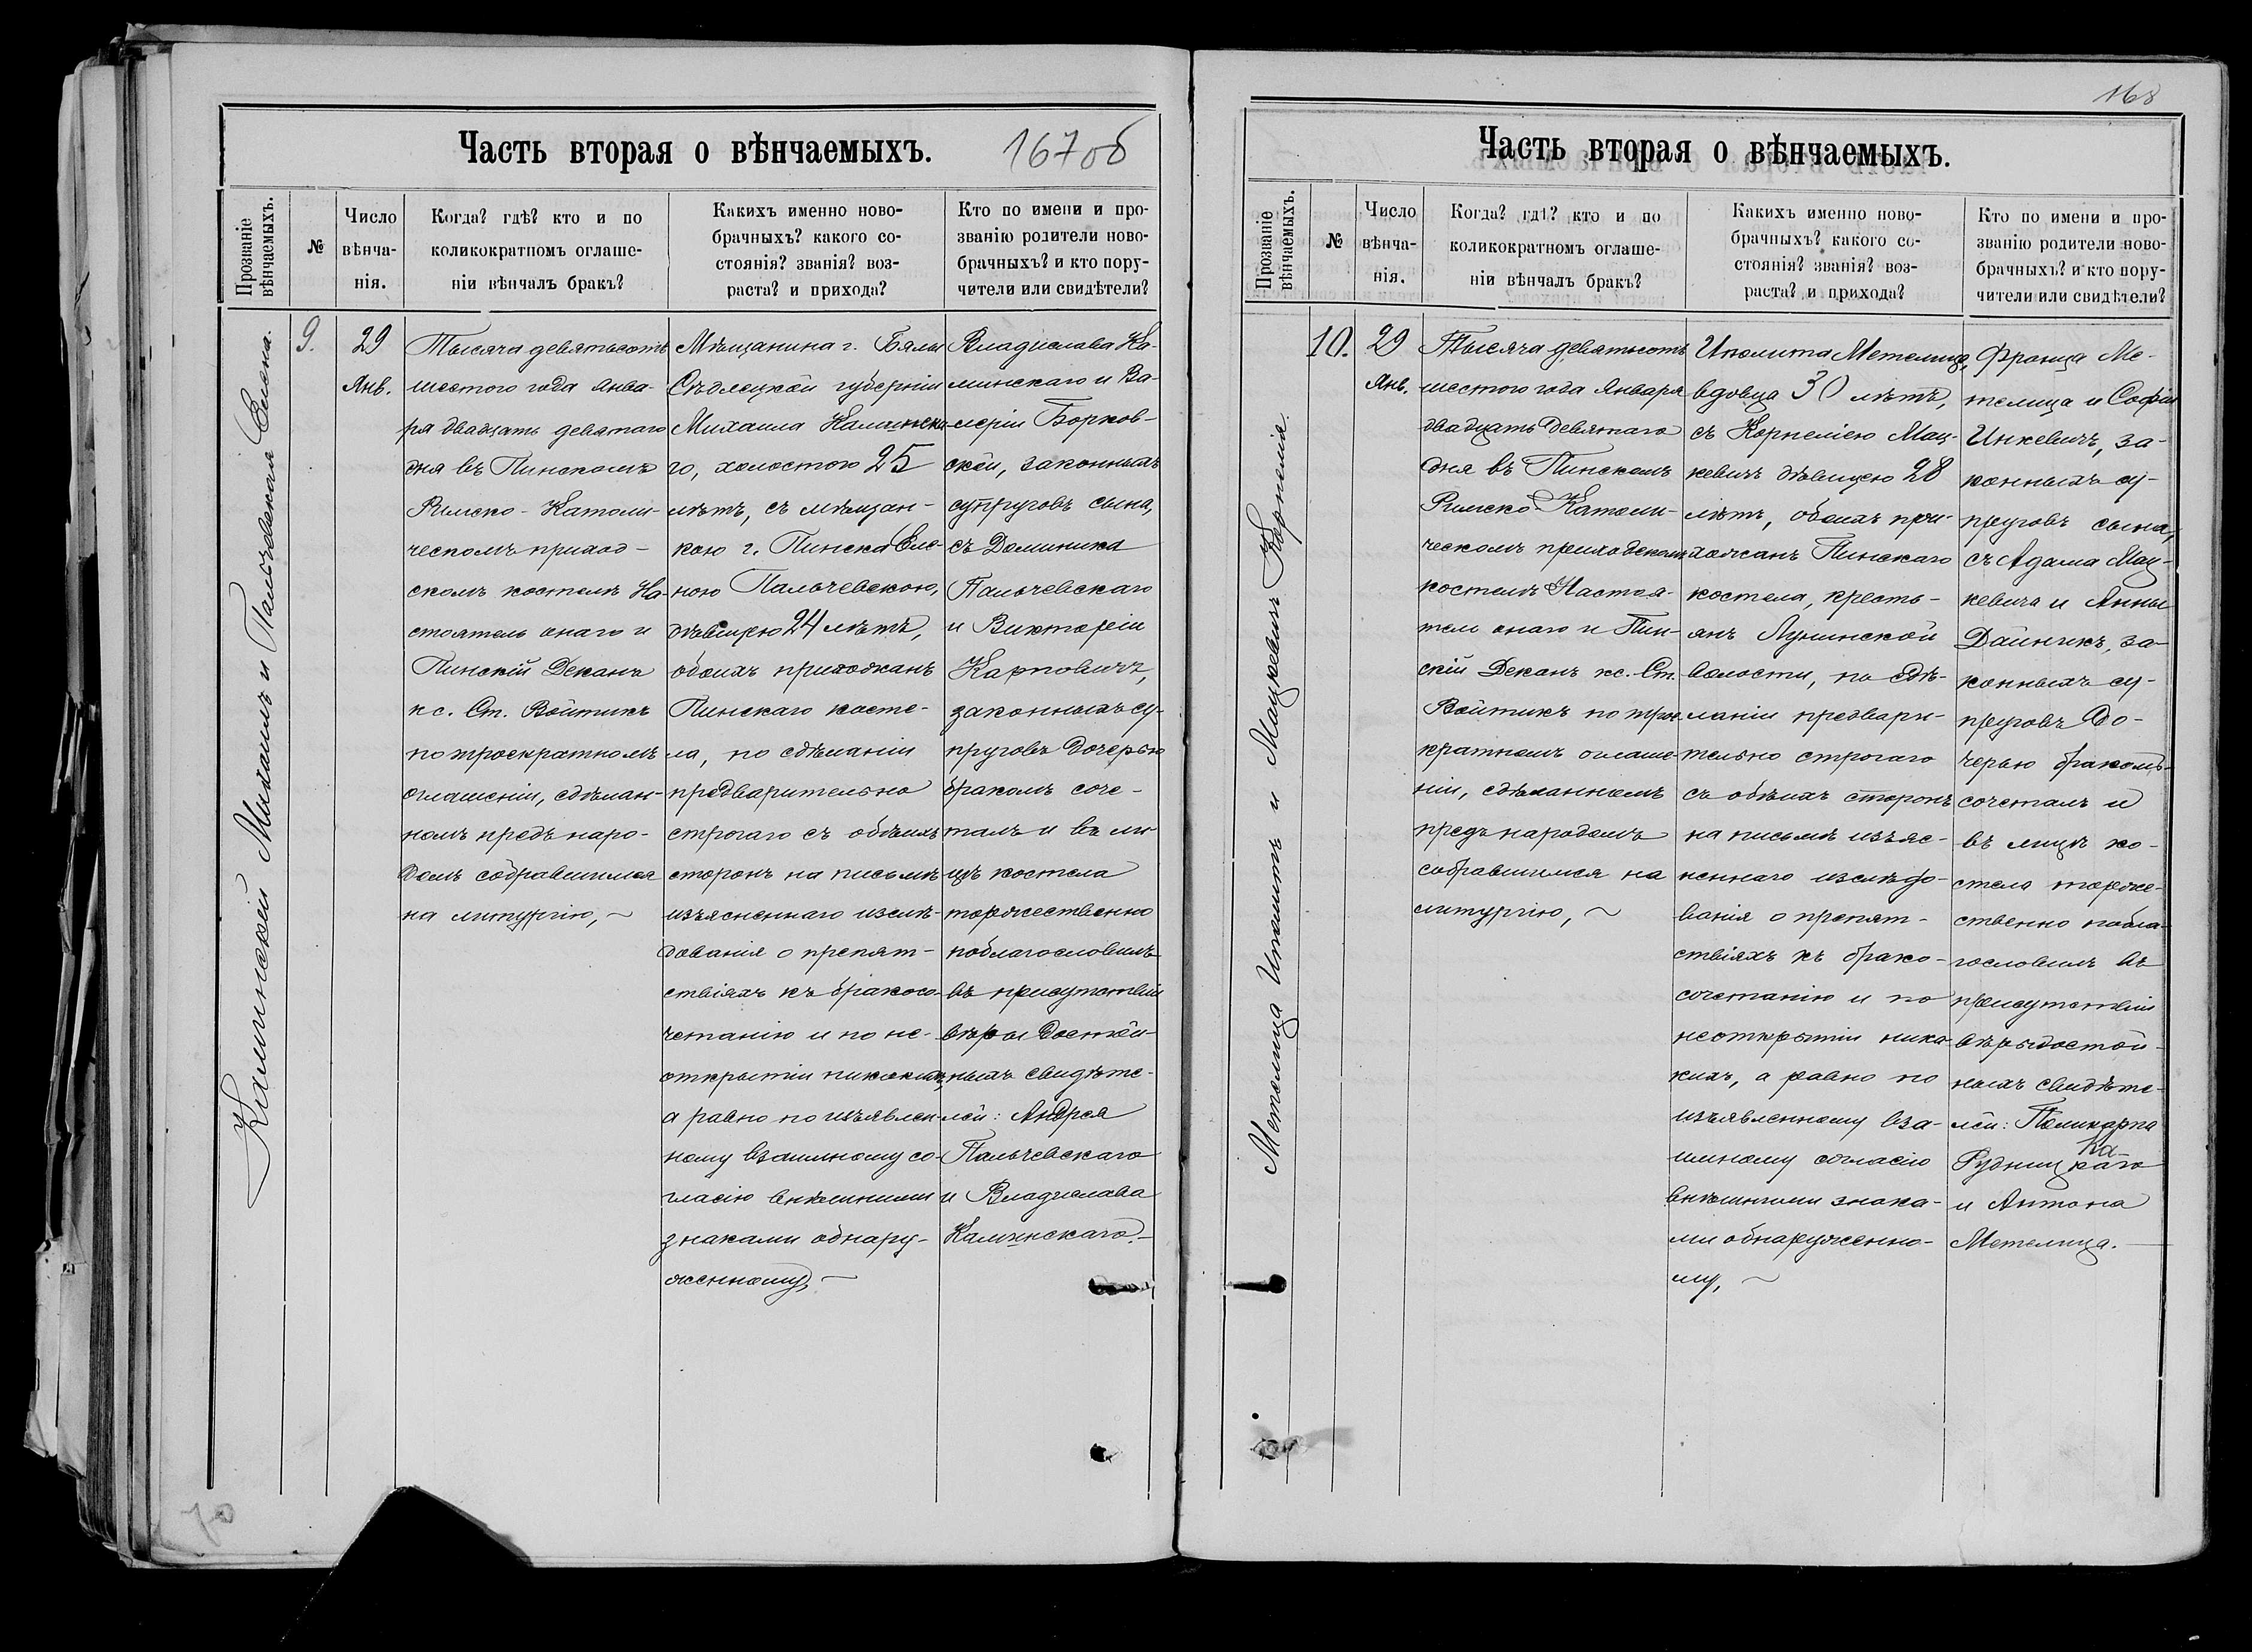 167об
Часть вторая о вѣнчаемыхъ.
Прозваніе
вѣнчаемыхъ.
№
Число
вѣнча-
нія.
Когда? гдѣ? кто и по
коликократномъ оглаше-
ніи вѣнчалъ бракъ?
Какихъ именно ново-
брачныхъ? какого со-
стоянія? званія? воз-
раста? и прихода?
Кто по имени и про-
званію родители ново-
брачныхъ? и кто пору-
чители или свидѣтели?
Каминскій Михаилъ и Пальчевская Елена.
9.
29
Янв.
Тысяча девятьсотъ
шестого года янва-
ря двадцать девятаго
дня въ Пинскомъ
Римско-Католи-
ческомъ приход-
скомъ костелѣ На-
стоятель онаго и
Пинскій Деканъ
кс. Ст. Войтикъ
по троекратномъ
оглашеніи, сдѣлан-
номъ предъ наро-
домъ собравшимся
на литургію, ~
Мѣщанина г. Бялы
Сѣдлецкой губерніи
Михаила Каминска-
го, холостого 25
лѣтъ, съ мѣщан-
кою г. Пинска Еле-
ною Пальчевскою,
дѣвицею 24 лѣтъ,
обоихъ прихожанъ
Пинскаго косте-
ла, по сдѣланіи
предварительно
строгаго съ обѣихъ
сторонъ на письмѣ
изъясненнаго изслѣ-
дованія о препят-
ствіяхъ къ бракосо-
четанію и по не-
открытіи никакихъ,
а равно по изъявлен-
ному взаимному со-
гласію внѣшними
знаками обнару-
женному, ~
Владислава Ка-
минскаго и Ва-
леріи Борков-
ской, законныхъ
супруговъ сына,
съ Доминика
Пальчевскаго
и Викторіи
Карповичъ,
законныхъ су-
пруговъ дочерью
бракомъ соче-
талъ и въ ли-
цѣ костела
торжественно
поблагословилъ
въ присутствіи
вѣры достой-
ныхъ свидѣте-
лей: Андрея
Пальчевскаго
и Владислава
Каминскаго.-
70
168
Часть вторая о вѣнчаемыхъ.
Прозваніе
вѣнчаемыхъ.
№
Число
вѣнча-
нія.
Когда? гдѣ? кто и по
коликократномъ оглаше-
ніи вѣнчалъ бракъ?
Какихъ именно ново-
брачныхъ? какого со-
стоянія? званія? воз-
раста? и прихода?
Кто по имени и про-
званію родители ново-
брачныхъ? и кто пору-
чители или свидѣтели?
Метелица Иполитъ и Мацкевичъ Корнелія.
10.
29
Янв.
Тысяча девятьсотъ
шестого года Января
двадцать девятаго
дня въ Пинскомъ
Римско-Католи-
ческомъ приходскомъ
костелѣ Настоя-
тель онаго и Пин-
скій Деканъ кс. Ст.
Войтикъ по трое-
кратномъ оглаше-
ніи, сдѣланномъ
предъ народомъ
собравшимся на
литургію, ~
Иполита Метелица,
вдовца 30 лѣтъ,
съ Корнеліею Мац-
кевичъ дѣвицею 28
лѣтъ, обоихъ при-
хожанъ Пинскаго
костела, кресть-
янъ Лунинской
волости, по сдѣ-
ланіи предвари-
тельно строгаго
съ обѣихъ сторонъ
на письмѣ изъяс-
неннаго изслѣдо-
ванія о препят-
ствіяхъ къ брако-
сочетанію и по
неоткрытіи ника-
кихъ, а равно по
изъявленному вза-
имному согласію
внѣшними знака-
ми обнаруженно-
му, ~
Франца Ме-
телица и Софіи
Инкевичъ, за-
конныхъ су-
пруговъ сына,
съ Адама Мац-
кевича и Анны
Дайникъ, за-
конныхъ су-
пруговъ до-
черью бракомъ
сочеталъ и
въ лицѣ ко-
стела торже-
ственно побла-
гословилъ въ
присутствіи
вѣры достой-
ныхъ свидѣте-
лей: Поликарпа
Рудницкаго
и Антона
Метелица.